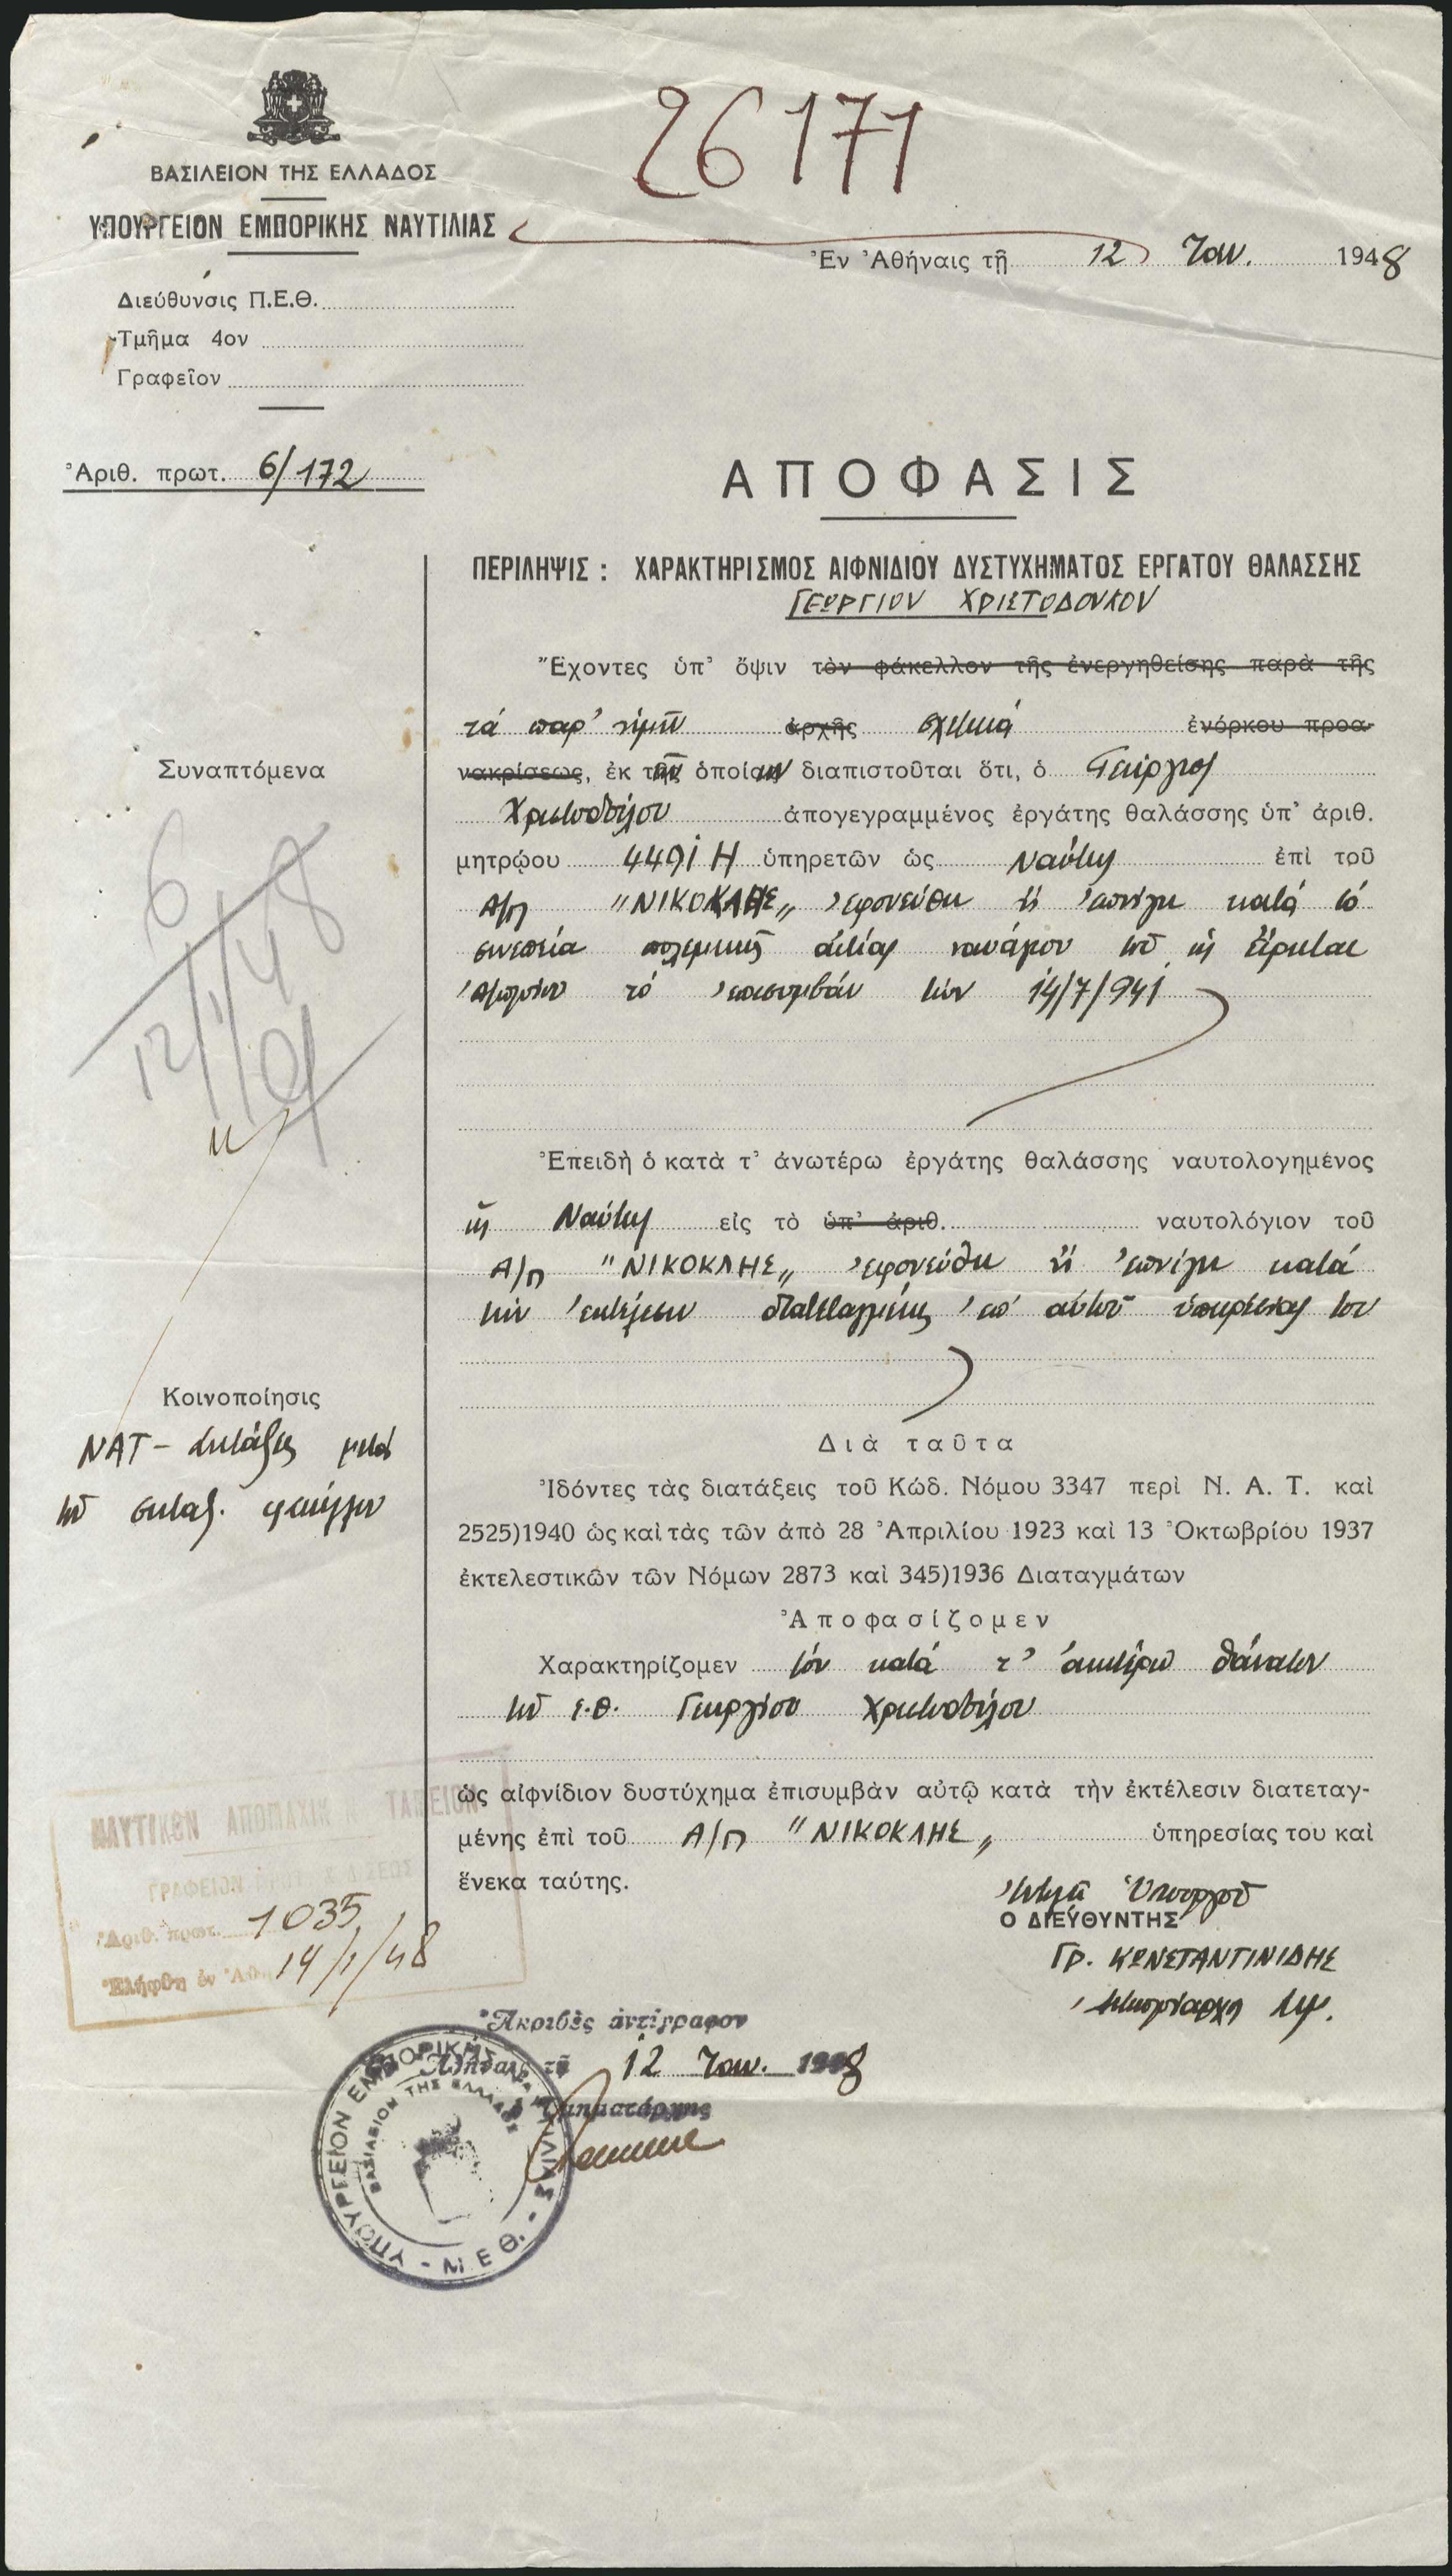 26171
ΒΑΣΙΛΕΙΟΝ ΤΗΣ ΕΛΛΑΔΟΣ
ΥΠΟΥΡΓΕΙΟΝ ΕΜΠΟΡΙΚΗΣ ΝΑΥΤΙΛΙΑΣ
Ἐν Ἀθήναις τῇ 12 Ἰαν. 1948
Διεύθυνσις Π.Ε.Θ.
Τμῆμα 4ον
Γραφεῖον
Ἀριθ. πρωτ. 6/172
ΑΠΟΦΑΣΙΣ
ΠΕΡΙΛΗΨΙΣ : ΧΑΡΑΚΤΗΡΙΣΜΟΣ ΑΙΦΝΙΔΙΟΥ ΔΥΣΤΥΧΗΜΑΤΟΣ ΕΡΓΑΤΟΥ ΘΑΛΑΣΣΗΣ
ΓΕΩΡΓΙΟΥ ΧΡΙΣΤΟΔΟΥΛΟΥ
Ἔχοντες ὑπ' ὄψιν τὸν φάκελλον τῆς ἐνεργηθείσης παρὰ τῆς
τά παρ' ἡμῖν ἀρχῆς σχετικά ἐνόρκου προα-
νακρίσεως, ἐκ τῶν ὁποίων διαπιστοῦται ὅτι, ὁ Γεώργιος
Χριστοδούλου ἀπογεγραμμένος ἐργάτης θαλάσσης ὑπ' ἀριθ.
μητρῴου 4491 Η ὑπηρετῶν ὡς ναύτης ἐπὶ τοῦ
Α/π "ΝΙΚΟΚΛΗΣ" ἐφονεύθη ἤ ἐπνίγη κατά τό
συνεπεία πολεμικῆς αἰτίας ναυάγιον τοῦ ὡς εἴρηται
ἀτμοπλοίου τό ἐπισυμβάν τήν 14/7/941
Συναπτόμενα
6
12/1/48
Ἐπειδὴ ὁ κατὰ τ' ἀνωτέρω ἐργάτης θαλάσσης ναυτολογημένος
ὡς Ναύτης εἰς τὸ ὑπ' ἀριθ. ναυτολόγιον τοῦ
Α/π "ΝΙΚΟΚΛΗΣ" ἐφονεύθη ἤ ἐπνίγη κατά
τήν ἐκτέλεσιν διατεταγμένης ἐπ' αὐτοῦ ὑπηρεσίας του
Κοινοποίησις
ΝΑΤ - Συντάξεις μετά
τοῦ συνταξ. φακέλλου
Διὰ ταῦτα
Ἰδόντες τὰς διατάξεις τοῦ Κώδ. Νόμου 3347 περὶ Ν. Α. Τ. καὶ
2525)1940 ὡς καὶ τὰς τῶν ἀπὸ 28 Ἀπριλίου 1923 καὶ 13 Ὀκτωβρίου 1937
ἐκτελεστικῶν τῶν Νόμων 2873 καὶ 345)1936 Διαταγμάτων
Ἀποφασίζομεν
Χαρακτηρίζομεν τόν κατά τ' ἀνωτέρω θάνατον
τοῦ ε.θ. Γεωργίου Χριστοδούλου
ὡς αἰφνίδιον δυστύχημα ἐπισυμβὰν αὐτῷ κατὰ τὴν ἐκτέλεσιν διατεταγ-
μένης ἐπὶ τοῦ Α/π "ΝΙΚΟΚΛΗΣ" ὑπηρεσίας του καὶ
ἕνεκα ταύτης.
Ἐντολῇ Ὑπουργοῦ
Ο ΔΙΕΥΘΥΝΤΗΣ
ΓΡ. ΚΩΝΣΤΑΝΤΙΝΙΔΗΣ
ΝΑΥΤΙΚΟΝ ΑΠΟΜΑΧΙΚ ΤΑΜΕΙΟΝ
ΓΡΑΦΕΙΟΝ
Ἀριθ. πρωτ. 1035
Ἐλήφθη ἐν Ἀθ. 14/1/48
Ἀκριβὲς ἀντίγραφον
Ἀθῆναι τῇ 12 Ἰαν. 1948
Ὁ Τμηματάρχης
ΥΠΟΥΡΓΕΙΟΝ ΕΜΠΟΡΙΚΗΣ ΝΑΥΤΙΛΙΑΣ - Μ Ε Θ. -
ΒΑΣΙΛΕΙΟΝ ΤΗΣ ΕΛΛΑΔΟΣ